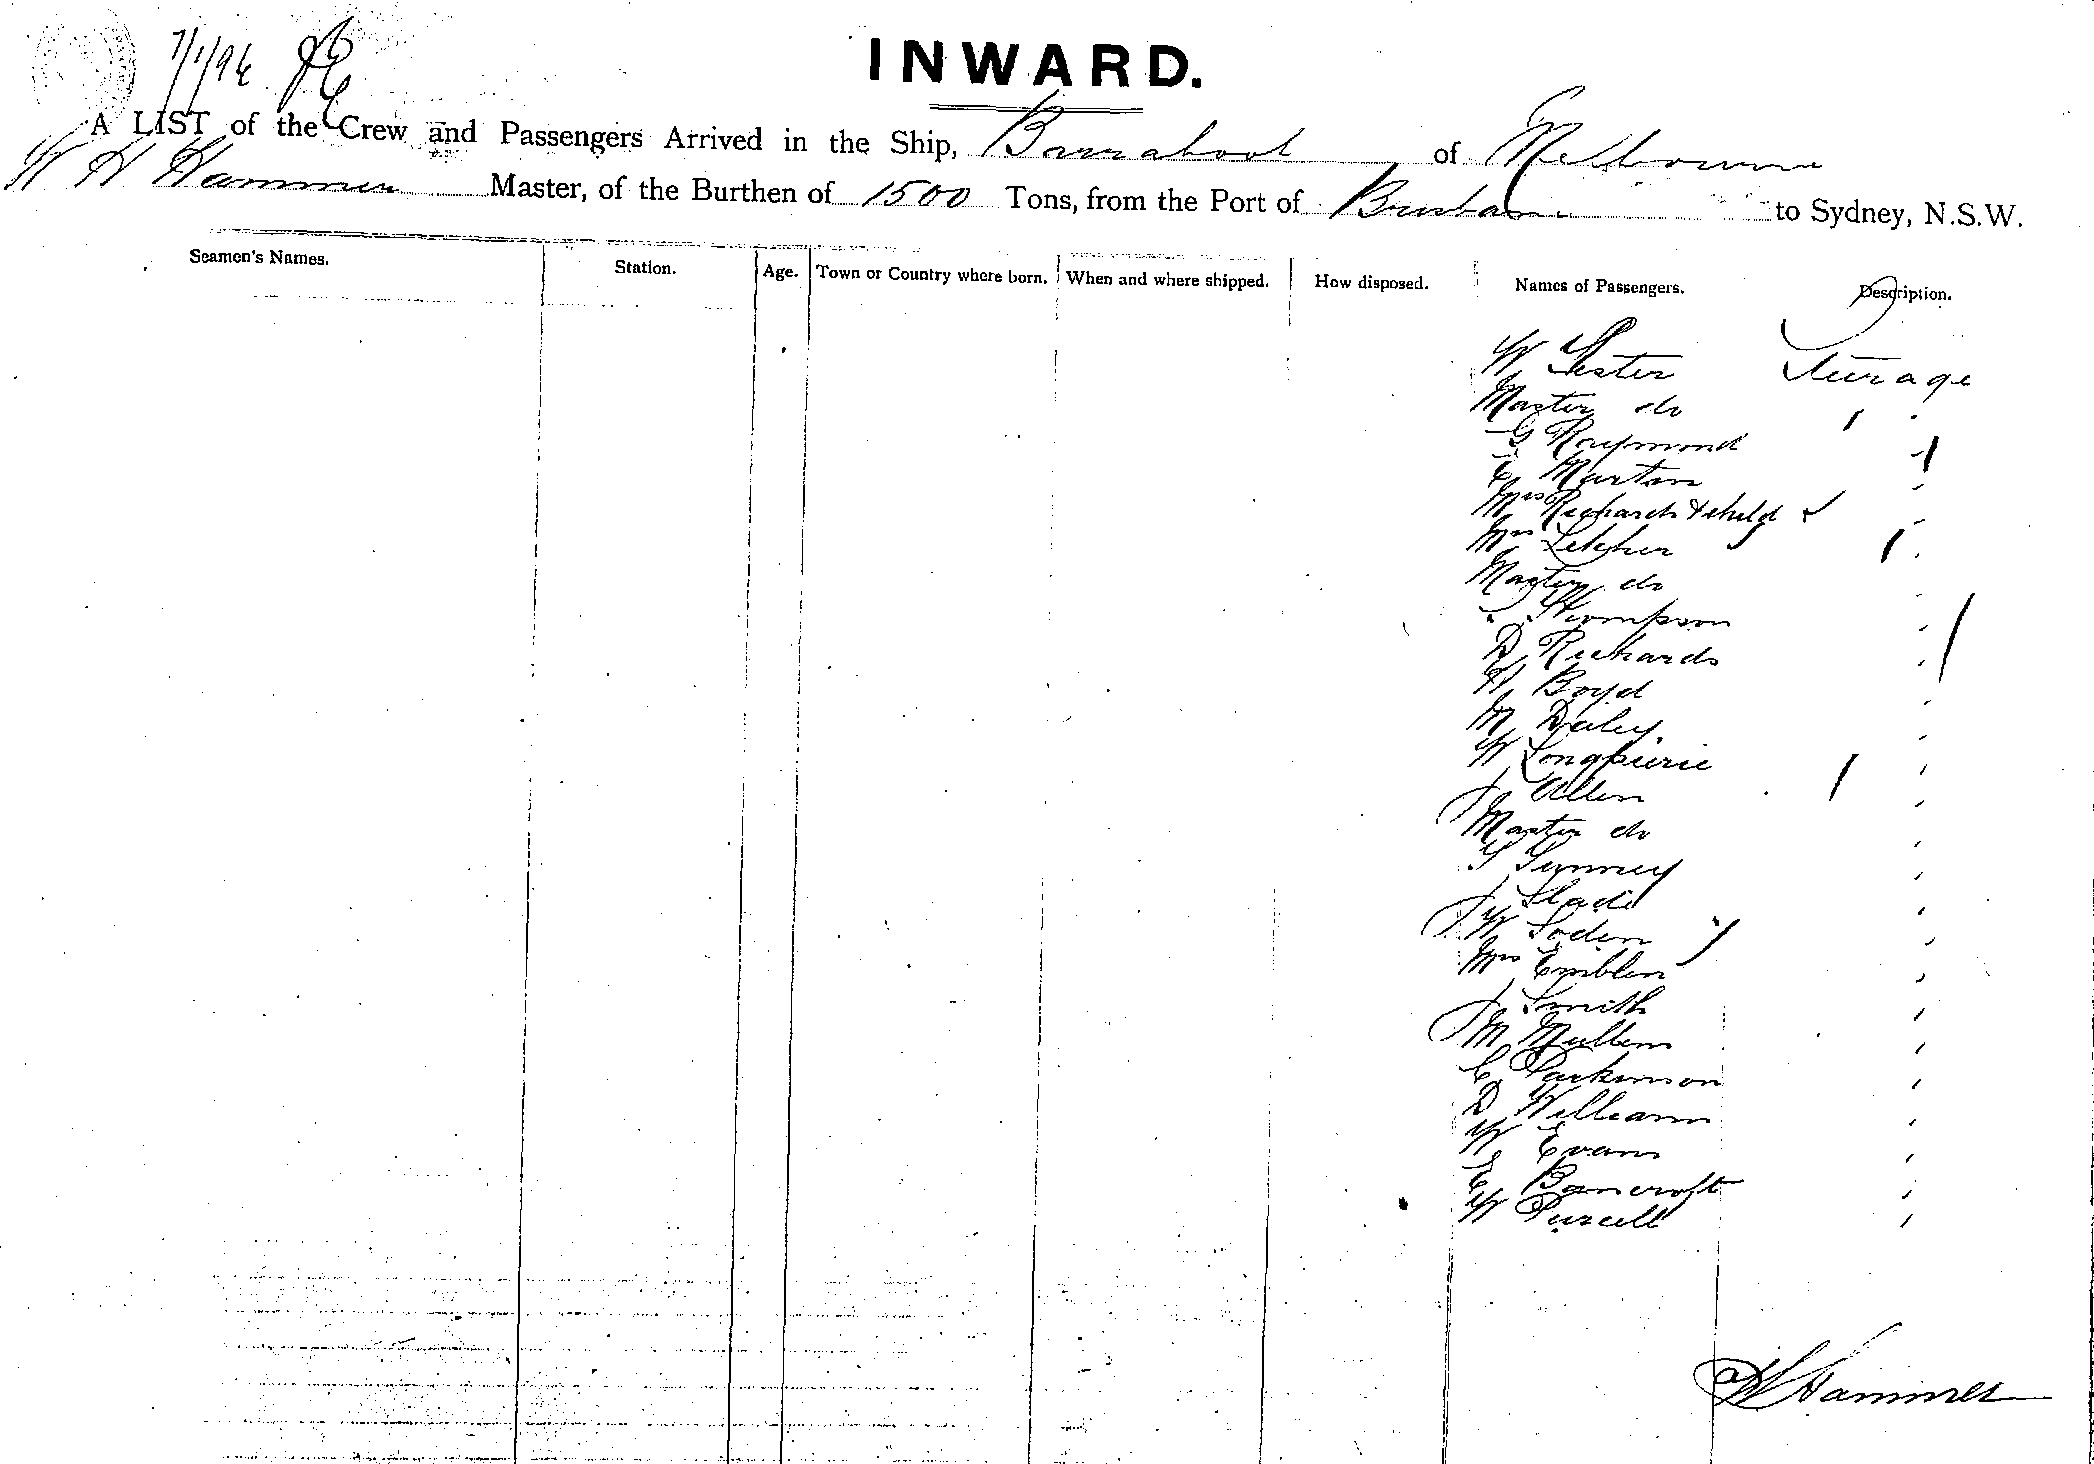 7/1/96
INWARD.
A LIST of the Crew and Passengers Arrived in the Ship, Barrabool of Melbourne
W H Hammer Master, of the Burthen of 1500 Tons, from the Port of Brisbane to Sydney, N.S.W.
Seamen's Names. Station. Age. Town or Country where born. When and where shipped. How disposed. Names of Passengers. Description.
W Lester Steerage
Master do
G Raymond
E Martin
Mrs Richards & child
Mrs Letcher
Master do
Thompson
D Richards
H Boyd
M Daley
W
J Allen
Master do
J Slade
W Soden
Mrs Emblen
J Smith
M Mullens
C Parkinson
D Williams
W Evans
E Bancroft
W Purcell
W Hammer